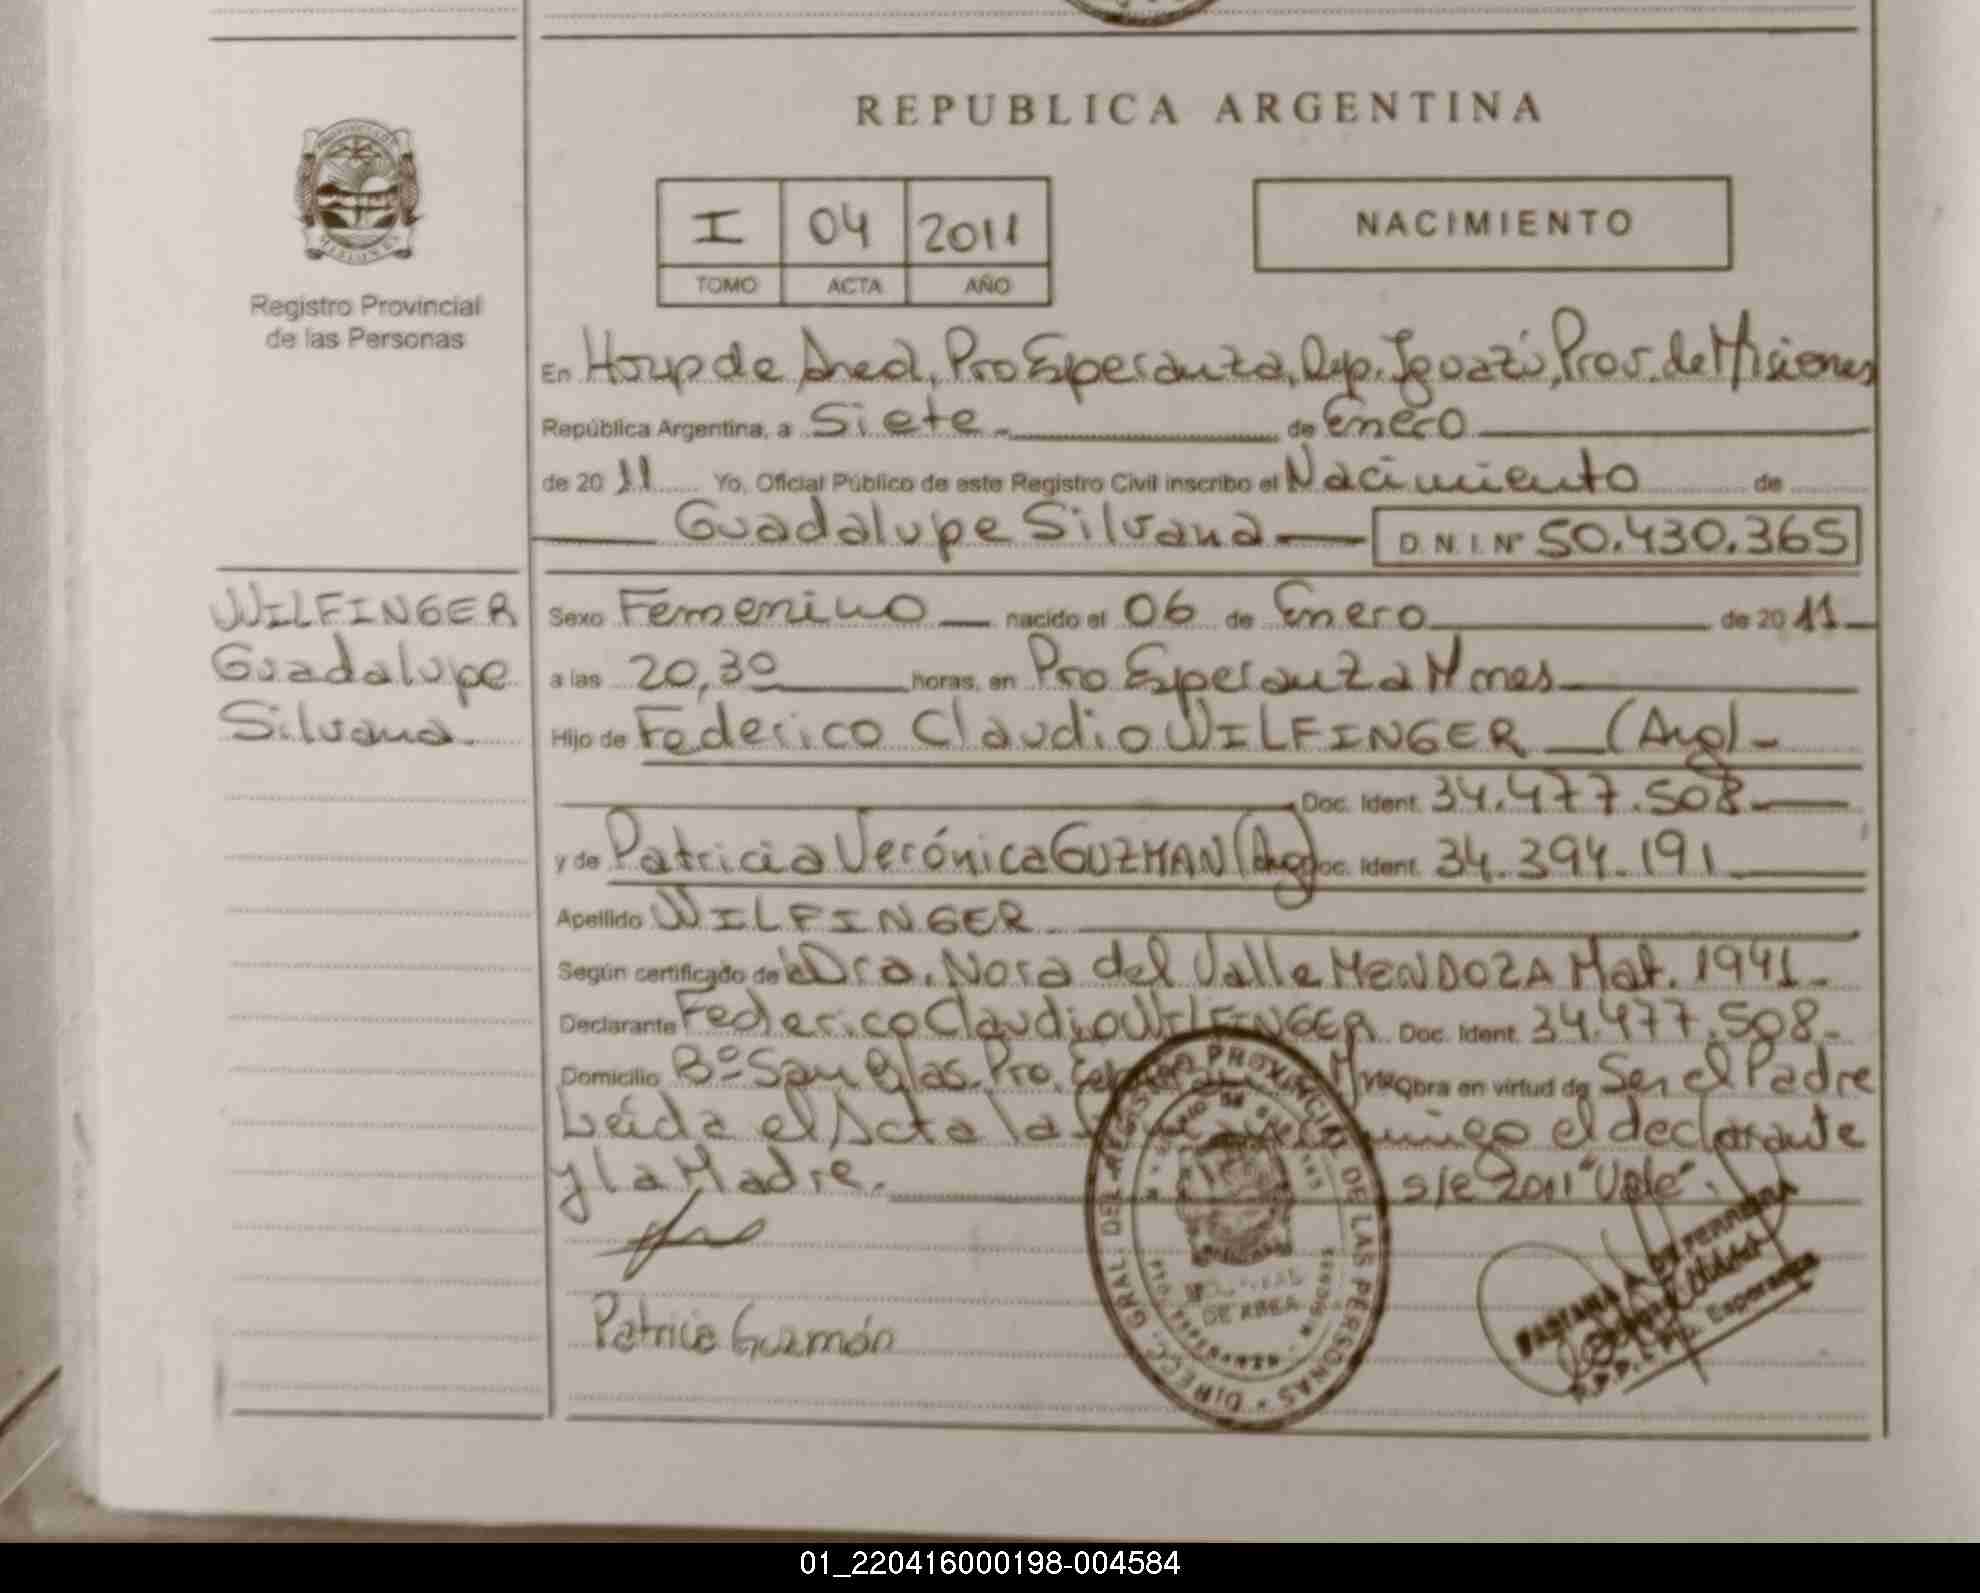 REPUBLICA ARGENTINA
I 04 2011
TOMO ACTA AÑO
NACIMIENTO
Registro Provincial
de las Personas
En Hosp de Area, Pto Esperanza, Dep. Iguazú, Prov. de Misiones
República Argentina, a Siete de Enero
de 2011 Yo, Oficial Público de este Registro Civil inscribo el Nacimiento de
Guadalupe Silvana D.N.I. Nº 50.430.365
WILFINGER
Guadalupe
Silvana.
Sexo Femenino nacido el 06 de Enero de 2011
a las 20,30 horas, en Pto Esperanza Mnes
Hijo de Federico Claudio WILFINGER (Arg)
Doc. Ident. 34.477.508
y de Patricia Verónica GUZMAN (Arg) Doc. Ident. 34.394.191
Apellido WILFINGER
Según certificado de Dra. Nora del Valle MENDOZA Mat. 1941
Declarante Federico Claudio WILFINGER Doc. Ident. 34.477.508
Domicilio Bº San Blas. Pto. Mnes obra en virtud de Ser el Padre
Leída el Acta la conmigo el declarante
y la Madre. s/e 2011 "Vale".
Patricia Guzmán
DIRECC. GRAL. DEL REGISTRO PROVINCIAL DE LAS PERSONAS
DE AREA
Esperanza
01_220416000198-004584